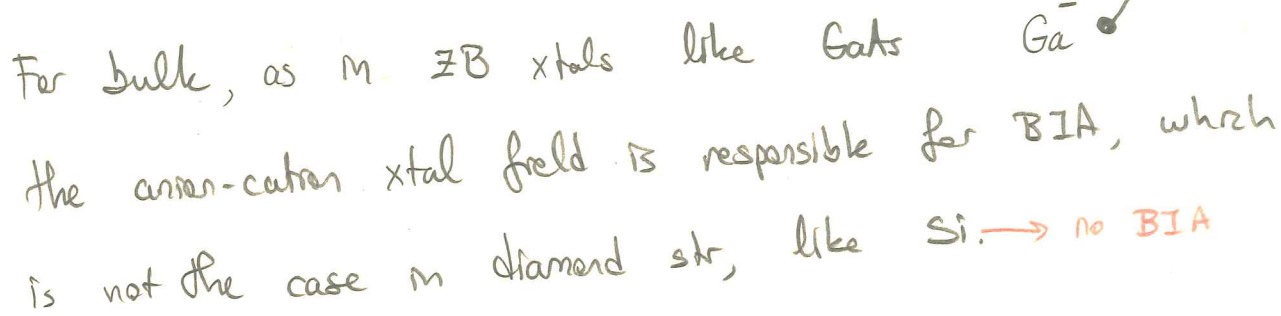 For bulk, as in ZB xtals like GaAs Ga⁻
the anion-cation xtal field is responsible for BIA, which
is not the case in diamond str, like Si. → no BIA